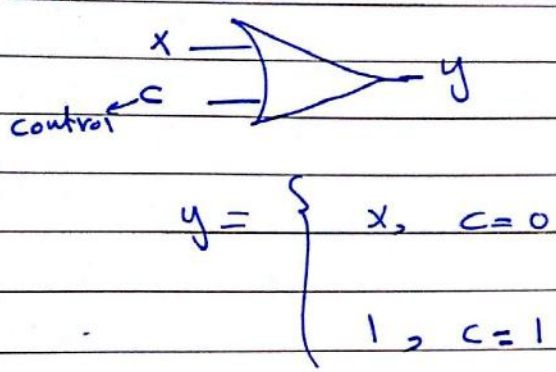 x
y
c
control
y = { x, c = 0
1, c = 1